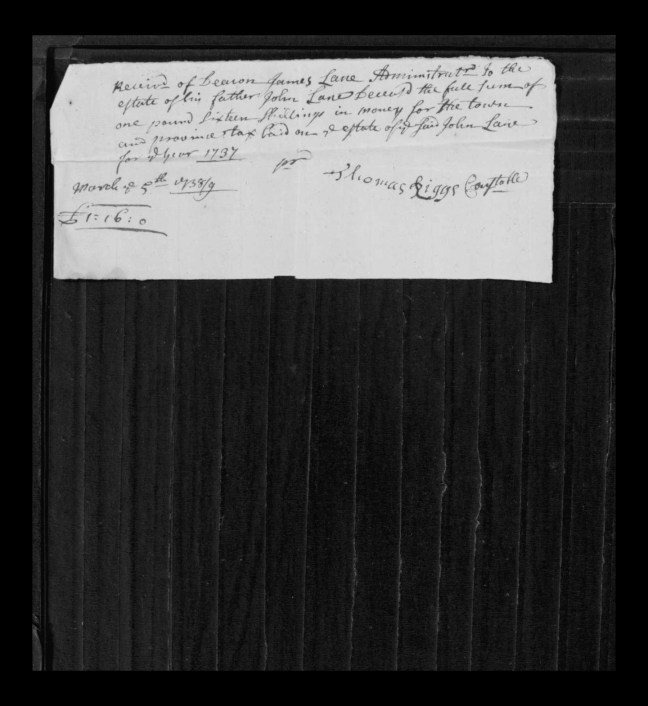 Receivd of Deacon James Lane Administratr to the
estate of his father John Lane Deceisd the full sum of
one pound Sixteen Shillings in money for the town
and province tax laid on ye estate of ye sd John Lane
for ye year 1737
pr
March ye 5th 1738/9
Thomas Riggs Constable
£1=16:0